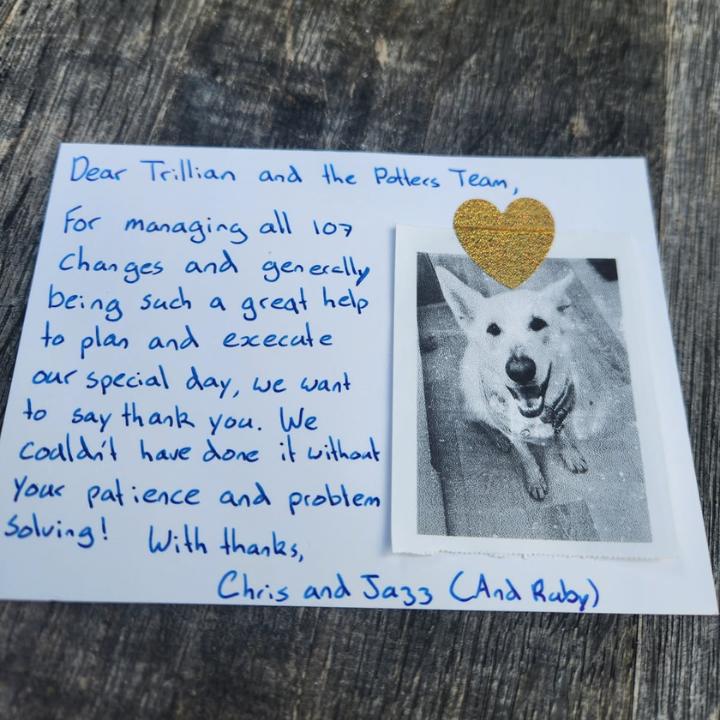 Dear Trillian and the Potters Team,
For managing all 107
changes and generally
being such a great help
to plan and execute
our special day, we want
to say thank you. We
couldn't have done it without
your patience and problem
solving! With thanks,
Chris and Jazz (And Ruby)